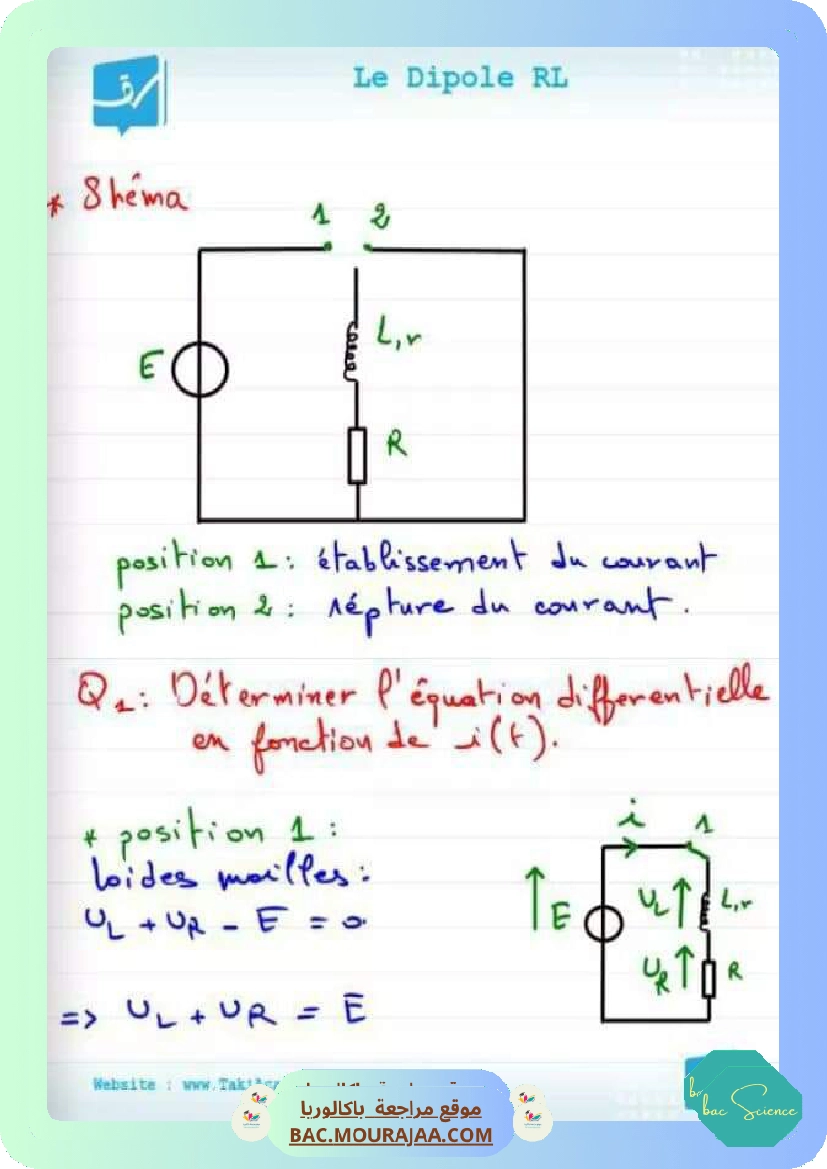 Le Dipole RL
* Shéma
1 2
L,r
E
R
position 1 : établissement du courant
position 2 : répture du courant.
Q1: Déterminer l'équation differentielle
en fonction de i(t).
* position 1 :
loi des mailles :
UL + UR - E = 0
=> UL + UR = E
i 1
E UL L,r
UR R
Website :
موقع مراجعة باكالوريا
BAC.MOURAJAA.COM
bac Science